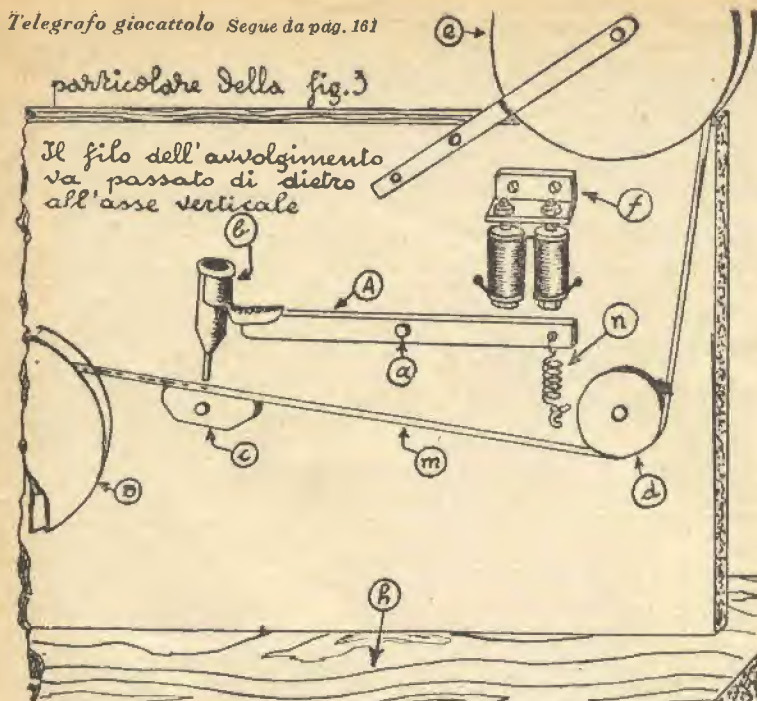 Telegrafo giocattolo Segue da pag. 161
particolare della fig. 3
Il filo dell'avvolgimento
va passato di dietro
all'asse verticale
e
f
b
A
n
a
c
m
d
B
h